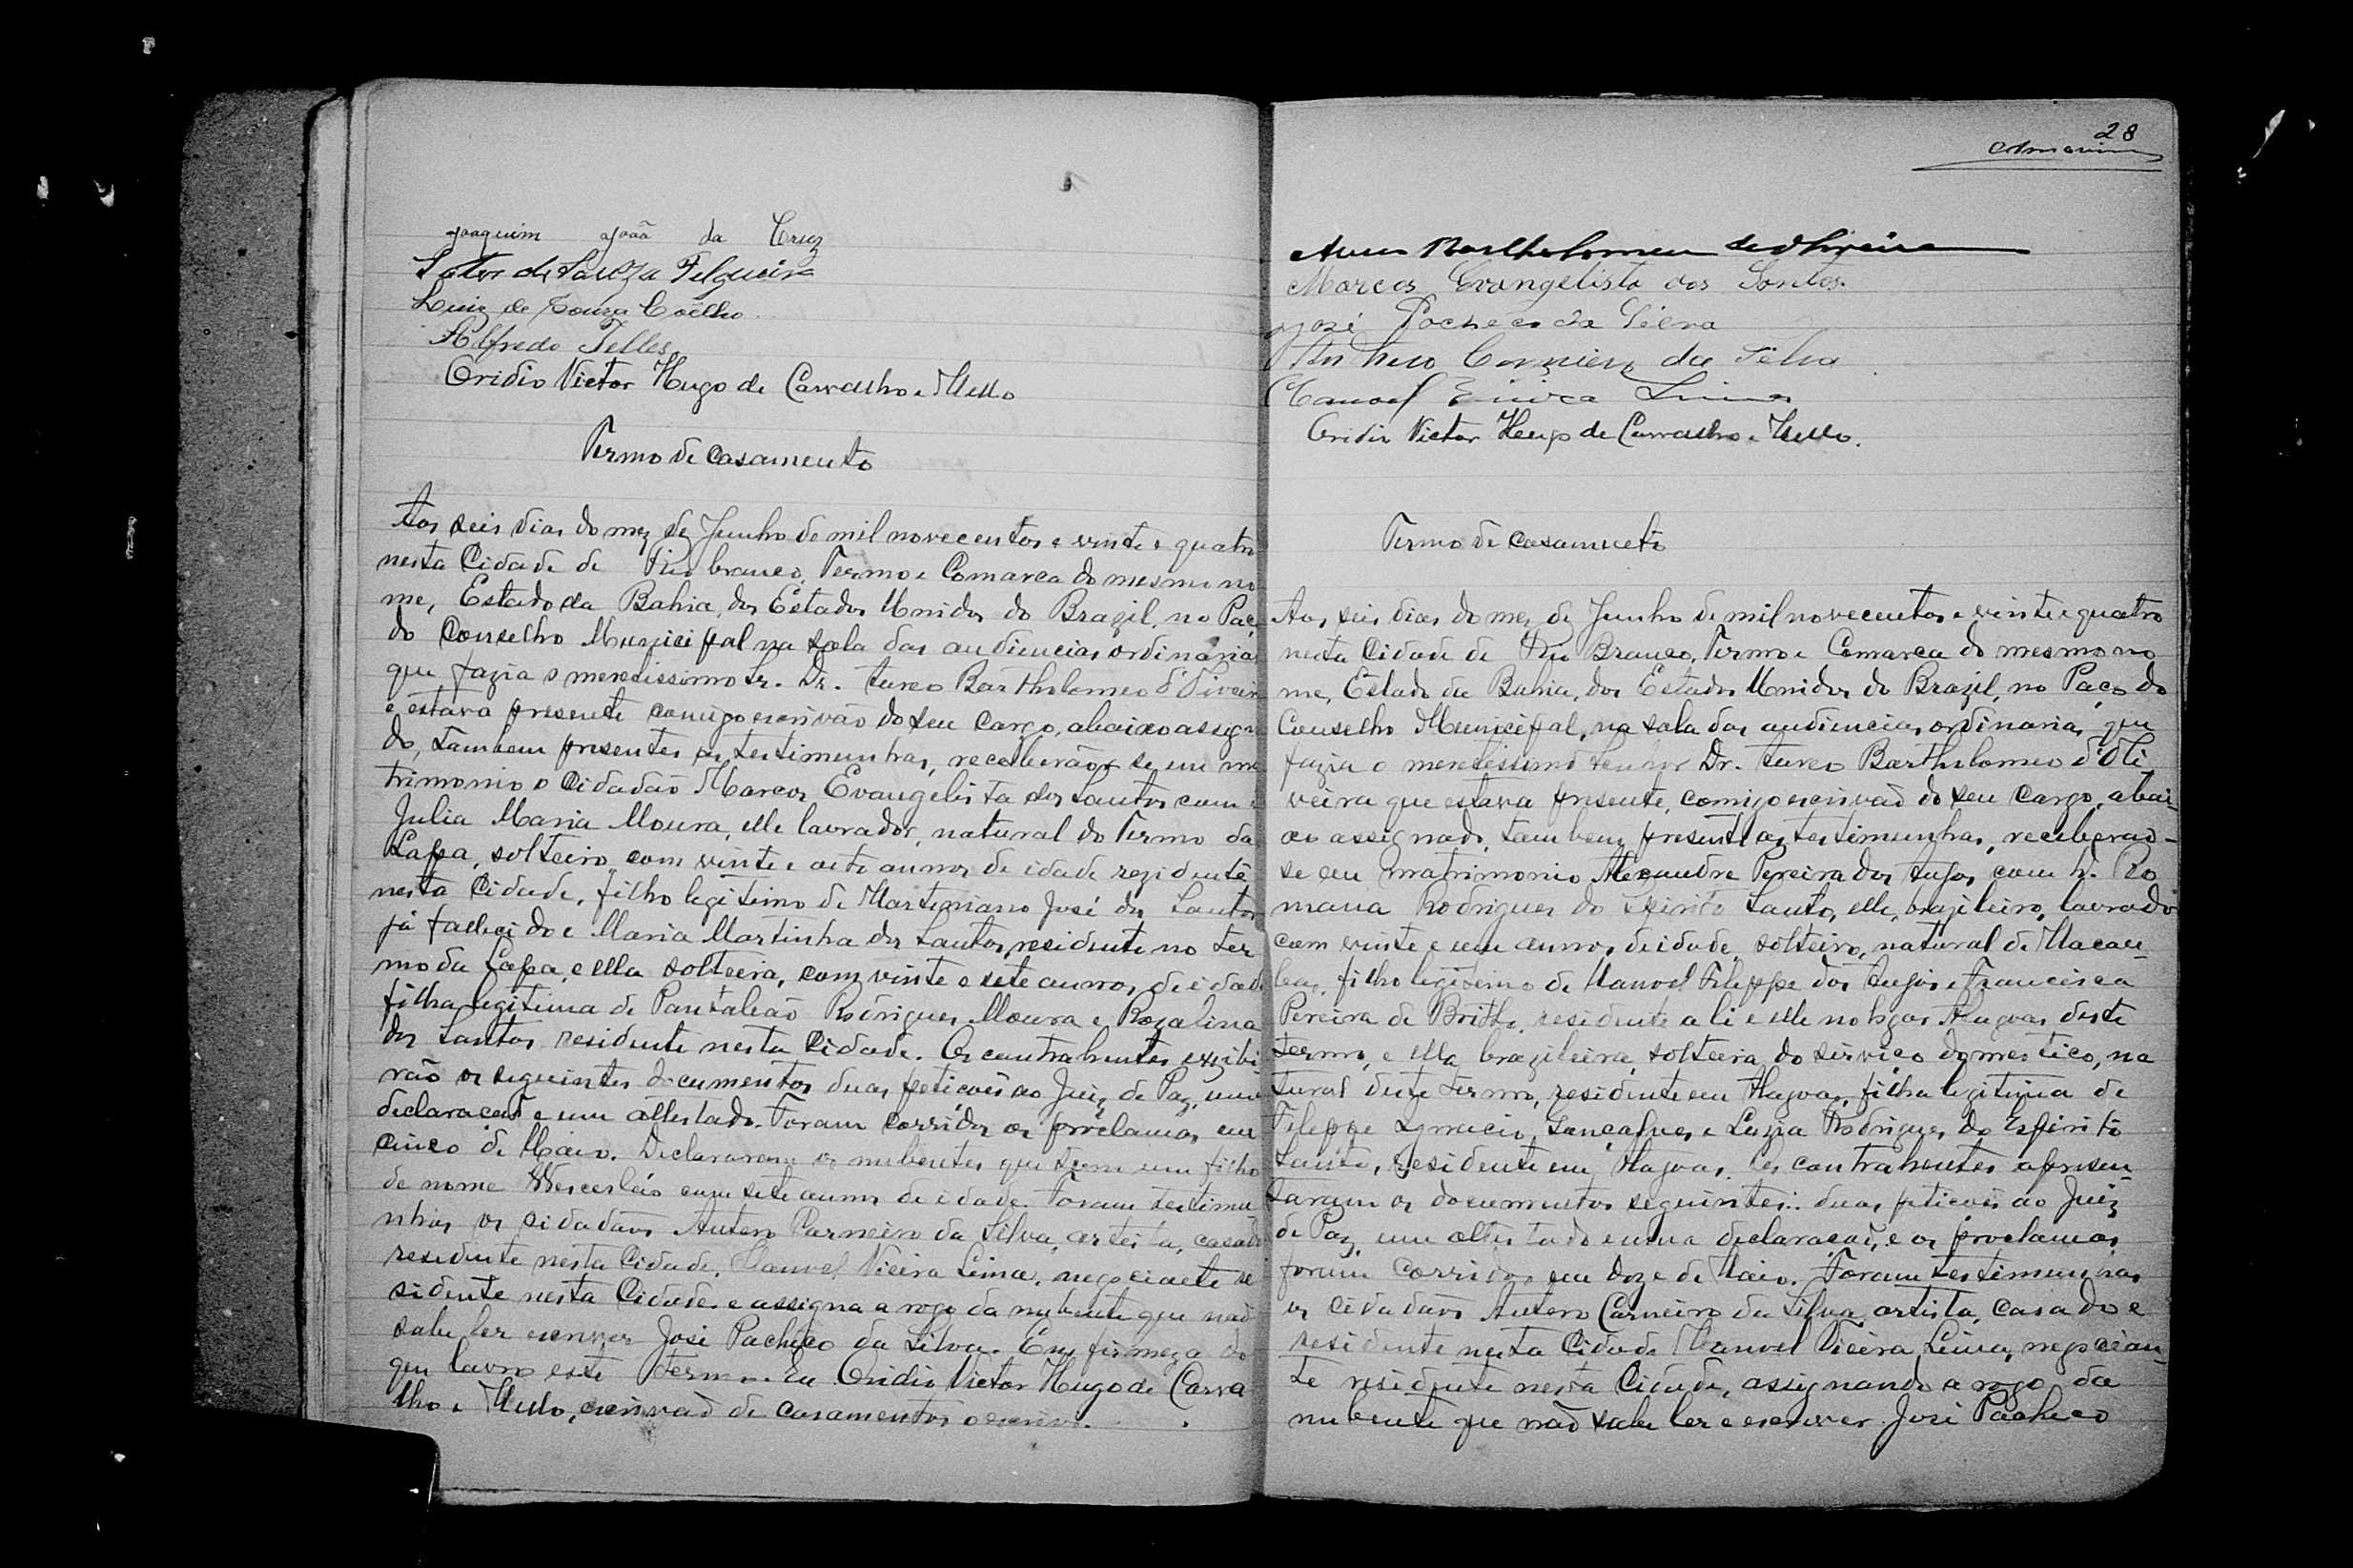 Joaquim João da Cruz
de Souza Felgueira
Luiz de Souza Coêlho
Alfredo Telles
Ovidio Victor Hugo de Carvalho e Mello
Termo de casamento
Aos seis dias do mez de Junho de mil novecentos e vinte e quatro
nesta Cidade de Rio branco, Termo e Comarca do mesmo no
me, Estado da Bahia, dos Estados Unidos do Brazil, no Paç
do Conselho Municipal na sala das audiencias ordinarias
que fazia o meretissimo Sr. Dr. Aureo Bartholomeo d'Oliveir
e estava presente comigo escrivão do seu cargo, abaixo assigna
do, tambem presentes as testimunhas, receberão-se em ma
trimonio o Cidadão Marcos Evangelista dos Santos com
Julia Maria Moura, elle lavrador, natural do Termo da
Lapa, solteiro com vinte e oito annos de idade rezidente
nesta Cidade, filho legitimo de Martiniano José dos Santos
já fallecido e Maria Martinha dos Santos, residente no ter
mo da Lapa, e ella solteira, com vinte e sete annos, de idade
filha legitima de Pantaleão Rodrigues Moura e Rozalina
dos Santos residente nesta Cidade. Os contrahentes exzibi
rão os seguintes documentos duas petições ao Juiz de Paz, uma
declaração e um attestado. Foram corridos os proclamas em
cinco de Maio. Declararam os nubentes que tem um filho
de nome Wencesláo com sete annos de idade. Foram testimu
nhas os cidadãos Antero Carneiro da Silva, artista, casado
residente nesta Cidade, Manoel Vieira Lima, negociante re
sidente nesta Cidade e assigna a rogo da nubente que não
sabe ler escrever José Pacheco da Silva. Em firmeza do
que lavro este termo. Eu Ovidio Victor Hugo de Carva
lho e Mello, escrivão de casamentos o escrivi.
28
Amorim
Aureo Bartholomeu de Oliveira
Marcos Evangelista dos Santos.
José Pacheco da Silva
Anthero Carneiro da Silva
Manoel Vieira Lima
Ovidio Victor Hugo de Carvalho e Mello.
Termo de casamento
Aos seis dias do mez de Junho de mil novecentos e vinte e quatro
nesta Cidade de Rio Branco, Termo e Comarca do mesmo no
me, Estado da Bahia, dos Estados Unidos do Brazil, no Paço do
Conselho Municipal, na sala das audiencias ordinarias que
fazia o meretissimo Senhor Dr. Aureo Bartholomeo d'Oli
veira que estava presente, comigo escrivão do seu cargo, abai-
xo assignado, tambem presente as testimunhas, receberão-
se em matrimonio Alexandre Pereira dos Anjos com D. Ro
mana Rodrigues do Espirito Santo, elle, brazileiro, lavrador
com vinte e um annos de idade, solteiro, natural de Macau-
bas, filho legitimo de Manoel Fileppe dos Anjos e Francisca
Pereira de Britto, residente ali e elle no lugar Alagoas deste
termo, e ella brazileira, solteira, do serviço domestico, na
tural deste termo, rezidente em Alagoas, filha legitima de
Fileppe Ignacio Gonçalves e Luzia Rodrigues do Espirito
Santo, residente em Alagoas. Os contrahentes apresen-
taram os documentos seguintes: duas petições ao Juiz
de Paz, um attestado e uma declaração, e os proclamas
foram corridos em doze de Maio. Foram testimunhas
os cidadãos Antero Carneiro da Silva, artista, casado e
residente nesta Cidade Manoel Vieira Lima, negocian-
te residente nesta Cidade, assignando a rogo da
nubente que não sabe ler e escrever José Pacheco